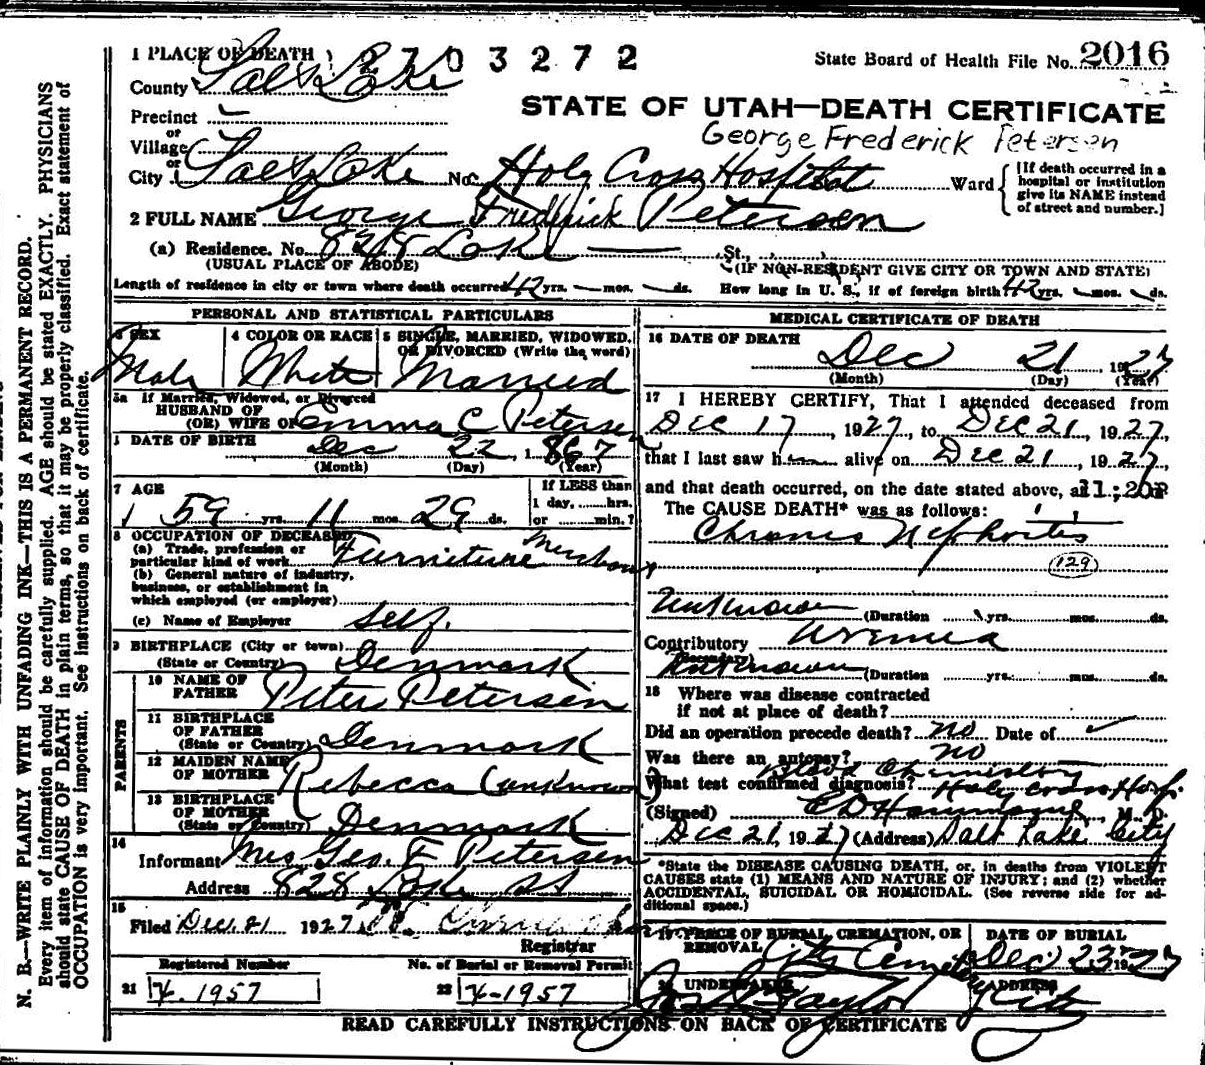 2703272
State Board of Health File No. 2016
STATE OF UTAH—DEATH CERTIFICATE
George Frederick Petersen
1 PLACE OF DEATH
County Salt Lake
Precinct
or
Village
or
City Salt Lake No. Holy Cross Hospital Ward
[If death occurred in a
hospital or institution
give its NAME instead
of street and number.]
2 FULL NAME George Frederick Petersen
(a) Residence. No. 828 Lake St.,
(USUAL PLACE OF ABODE) (IF NON-RESIDENT GIVE CITY OR TOWN AND STATE)
Length of residence in city or town where death occurred 42 yrs. — mos. — ds. How long in U. S., if of foreign birth 42 yrs. — mos. — ds.
PERSONAL AND STATISTICAL PARTICULARS
3 SEX
Male
4 COLOR OR RACE
White
5 SINGLE, MARRIED, WIDOWED,
OR DIVORCED (Write the word)
Married
5a If Married, Widowed, or Divorced
HUSBAND OF
(OR) WIFE OF Emma C Petersen
DATE OF BIRTH
Dec 22, 1867
(Month) (Day) (Year)
7 AGE
59 yrs. 11 mos. 29 ds.
If LESS than
1 day, hrs.
or min.?
8 OCCUPATION OF DECEASED
(a) Trade, profession or
particular kind of work Furniture
(b) General nature of industry,
business, or establishment in
which employed (or employer)
(c) Name of Employer self.
9 BIRTHPLACE (City or town)
(State or Country) Denmark
PARENTS
10 NAME OF
FATHER Peter Petersen
11 BIRTHPLACE
OF FATHER
(State or Country) Denmark
12 MAIDEN NAME
OF MOTHER Rebecca (unknown)
13 BIRTHPLACE
OF MOTHER
(State or Country) Denmark
14
Informant Mrs Geo. F Petersen
Address 828 Lake St
15
Filed Dec. 21 1927
Registrar
Registered Number
21 X. 1957
No. of Burial or Removal Permit
22 X-1957
MEDICAL CERTIFICATE OF DEATH
16 DATE OF DEATH
Dec 21, 1927
(Month) (Day) (Year)
17 I HEREBY CERTIFY, That I attended deceased from
Dec 17, 1927, to Dec 21, 1927,
that I last saw him alive on Dec 21, 1927
and that death occurred, on the date stated above, at 11:20P
The CAUSE DEATH* was as follows:
Chronic Nephritis
(129)
Unknown (Duration yrs. mos. ds.
Contributory Uremia
(Secondary)
Unknown (Duration yrs. mos. ds.
18 Where was disease contracted
if not at place of death?
Did an operation precede death? no Date of
Was there an autopsy? no
Blood Chemistry
What test confirmed diagnosis? Holy Cross Hosp.
(Signed) E D Hammond M. D.
Dec 21, 1927 (Address) Salt Lake City
*State the DISEASE CAUSING DEATH, or, in deaths from VIOLENT
CAUSES state (1) MEANS AND NATURE OF INJURY; and (2) whether
ACCIDENTAL, SUICIDAL OR HOMICIDAL. (See reverse side for ad-
ditional space.)
19 PLACE OF BURIAL, CREMATION, OR
REMOVAL City Cemetery
DATE OF BURIAL
Dec 23 1927
20 UNDERTAKER
Taylor
ADDRESS
City
READ CAREFULLY INSTRUCTIONS ON BACK OF CERTIFICATE
N. B.—WRITE PLAINLY WITH UNFADING INK—THIS IS A PERMANENT RECORD.
Every item of information should be carefully supplied. AGE should be stated EXACTLY. PHYSICIANS
should state CAUSE OF DEATH in plain terms, so that it may be properly classified. Exact statement of
OCCUPATION is very important. See instructions on back of certificate.